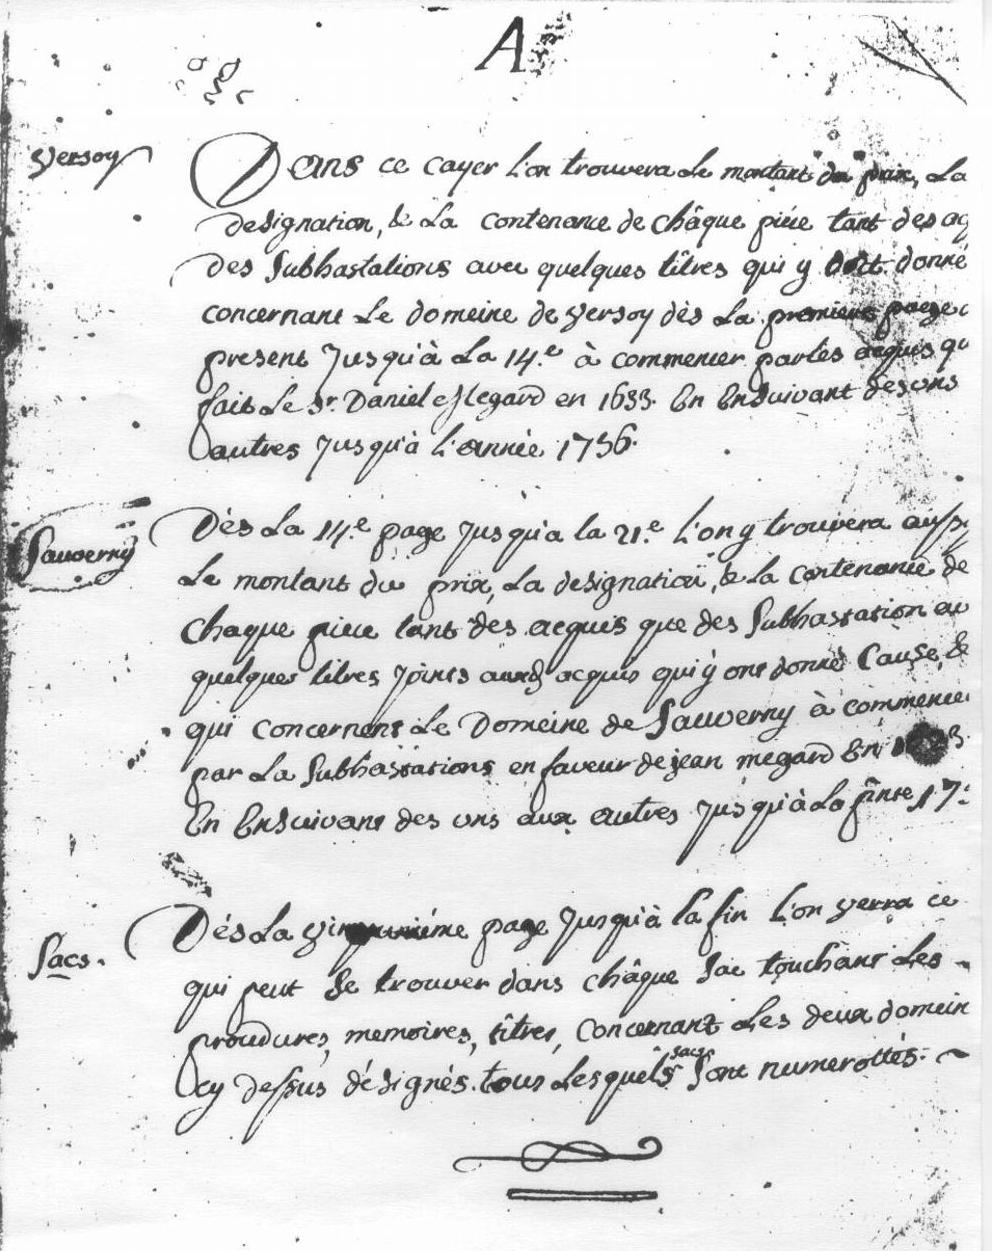 A
Versoy
Dans ce cayer l'on trouvera le montant du prix, la
designation, & la contenance de châque piéce tant des ac
des Subhastations avec quelques tîtres qui y doit donné
concernant le domeine de Versoy dès la premiere paege
present jusqu'à la 14.e à commencer par les acquis qu
fait le Sr. Daniel Megard en 1633. En Ensuivant des uns
autres jusqu'à l'année 1736.
Sauverny
Dès la 14.e page jusqu'a la 21.e l'on y trouvera aussi
le montant du prix, la designation, & la contenance de
chaque piéce tant des acquis que des Subhastation av
quelques titres joints auxd acquis qui y ont donné Cause, &
qui concernent le Domeine de Sauverny à commencer
par la Subhastations en faveur de jean megard En
En Ensuivant des uns aux autres jusqu'à la finte 17
Sacs.
Dés la page jusqu'à la fin l'on verra ce
qui peut se trouver dans châque sac touchant les
procedures, memoires, tîtres, concernant les deux domein
cy dessus désignés. tous lesquels sacs sont numerottés.